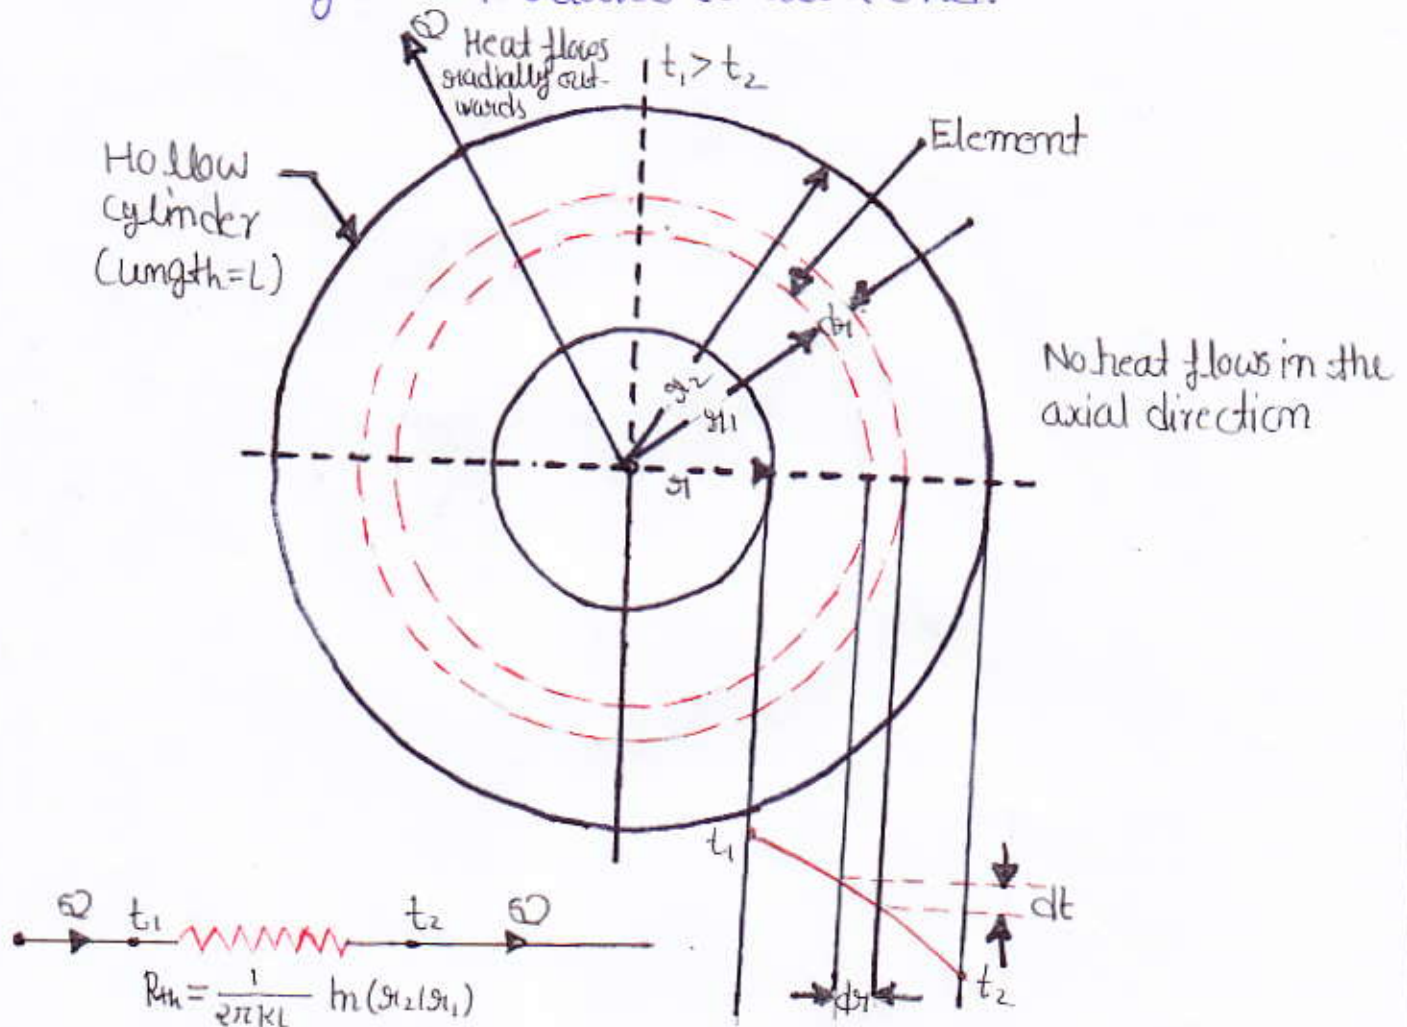 Q
Heat flows
radially out-
wards
t₁ > t₂
Element
Hollow
cylinder
(length=L)
dr
r₂
r₁
r
No heat flows in the
axial direction
t₁
dt
t₂
dr
Q t₁ t₂ Q
Rth = 1/2πKL ln(r₂/r₁)